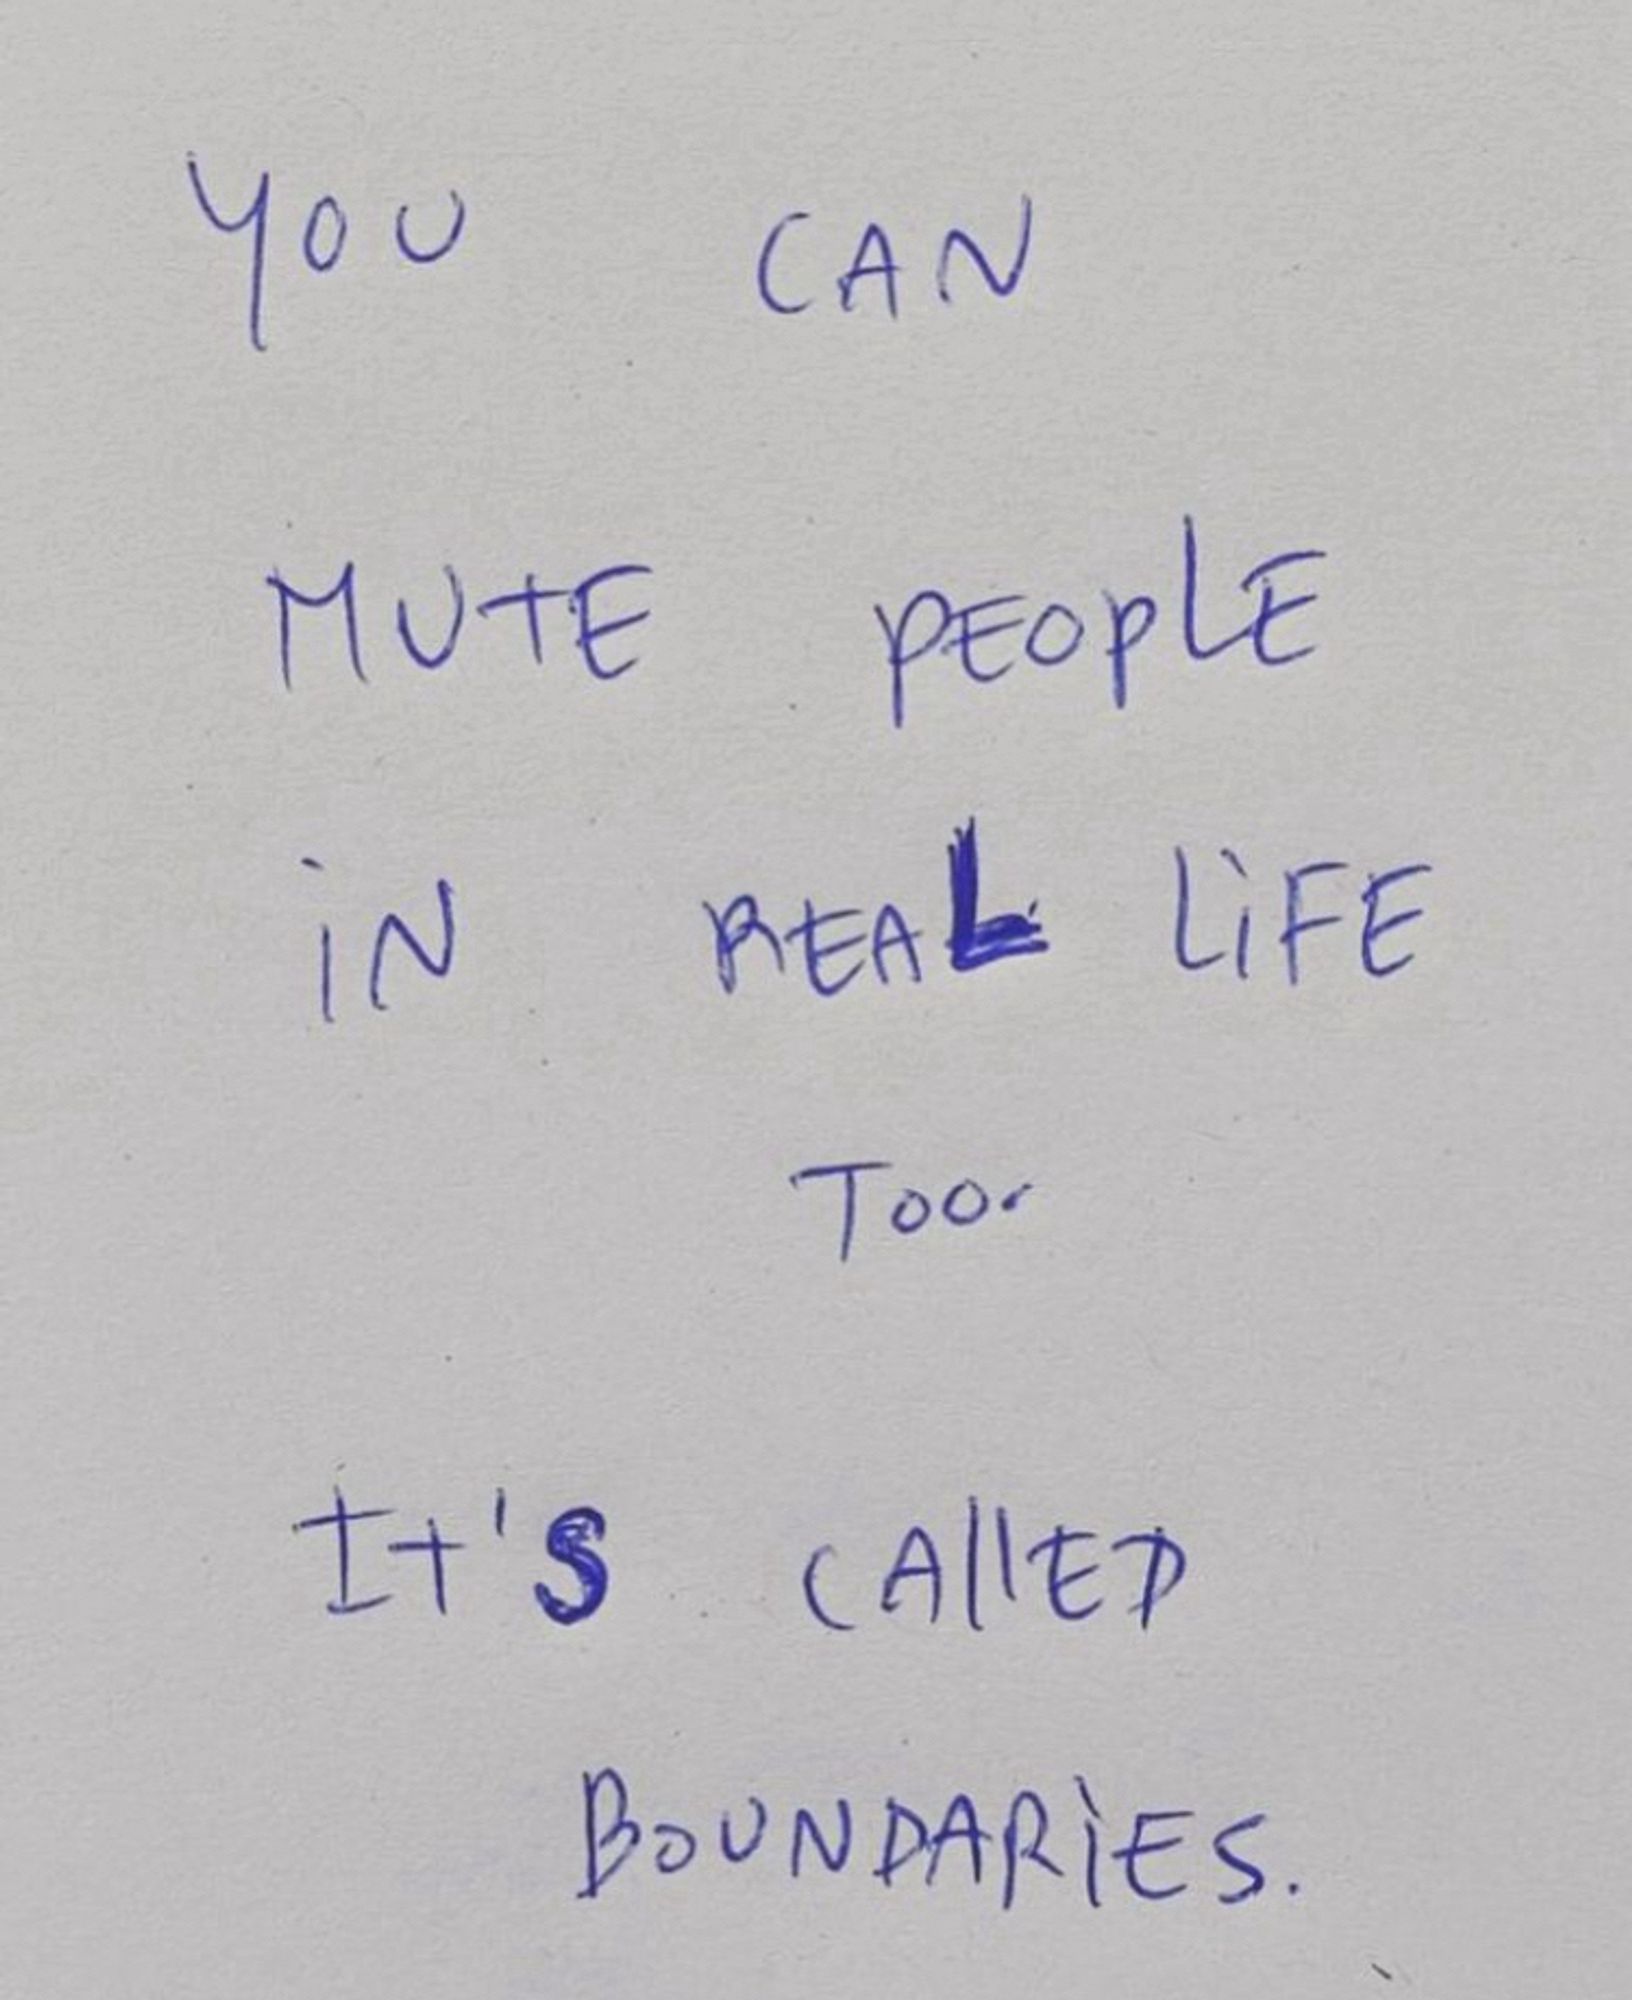 YOU CAN
MUTE PEOPLE
iN REAL LiFE
Too.
It's CAllED
BOUNDARiES.